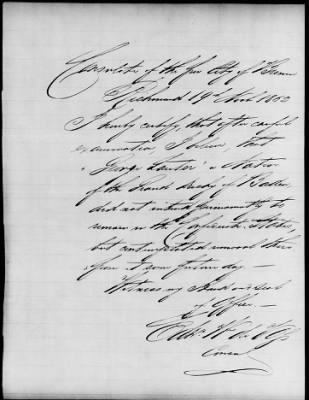 Consulate of the free City of Bremen
Richmond 19th Novb 1862
I hereby certify, that after careful
examination, I believe, that
"George Lauter" a Native
of the Grand duchy of Baden,
did not intend permanently to
remain in the Confederate States,
but contemplated removal there
from at some future day. —
Witness my Hand and Seal
of Office. —
Edw. W. de
Consul